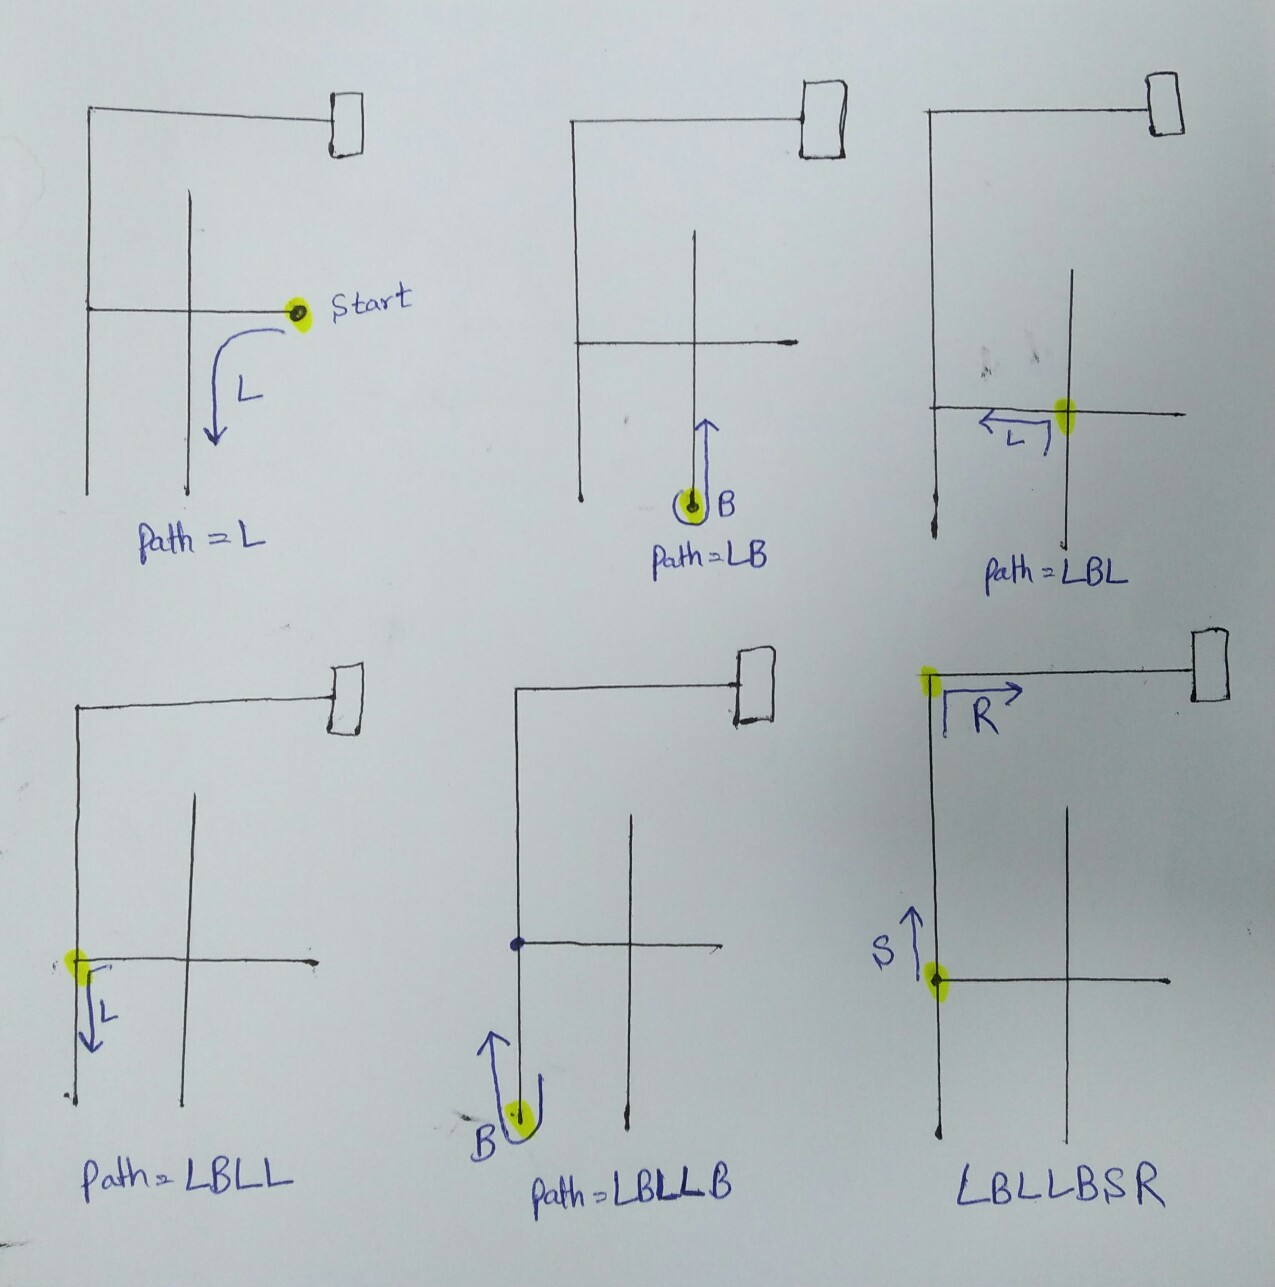 Start
L
Path = L
B
Path = LB
L
Path = LBL
L
Path = LBLL
B
Path = LBLLB
R
S
LBLLBSR